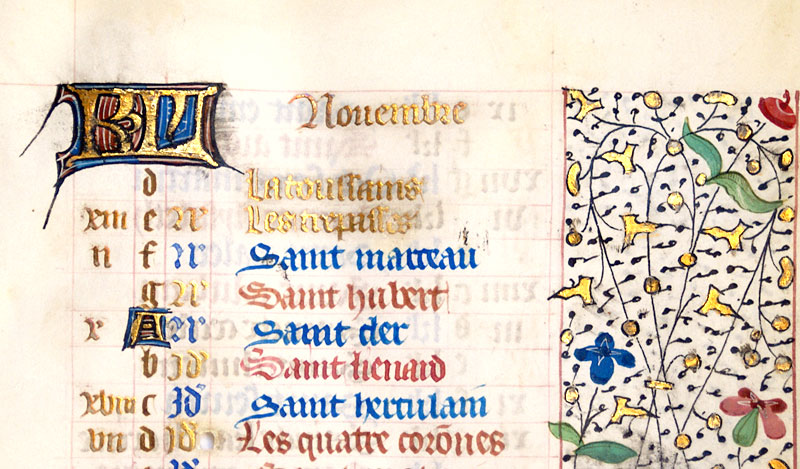 KL Nouembre
d Latoussains
xiii e N Les trepasses
ii f N Saint marceau
g N Saint hubert
x A N Saint cler
b Id Saint lienard
xviii c Id Saint herculain
vii d Id Les quatre corones